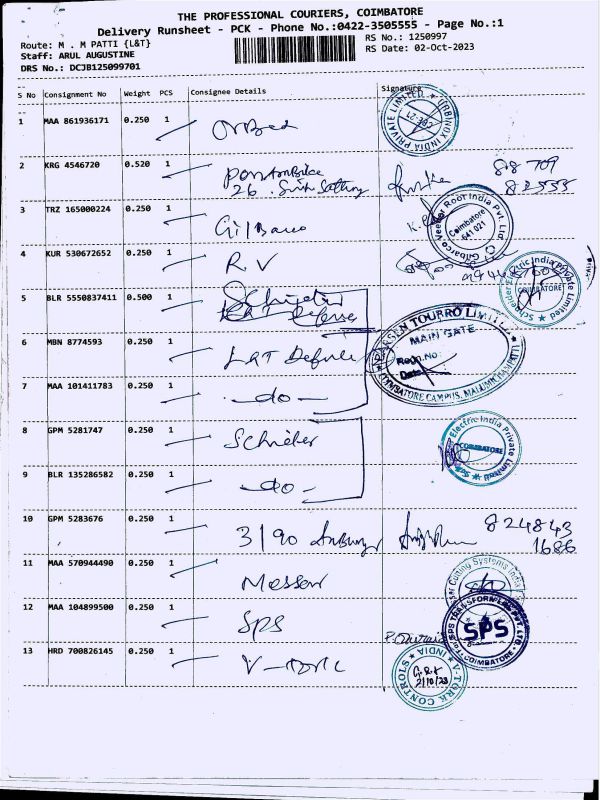 THE PROFESSIONAL COURIERS, COIMBATORE
Delivery Runsheet - PCK - Phone No.:0422-3505555 - Page No.:1
Route: M . M PATTI {L&T}
RS No.: 1250997
Staff: ARUL AUGUSTINE
RS Date: 02-Oct-2023
DRS No.: DCJB125099701
S No Consignment No Weight PCS Consignee Details Signature
1 MAA 861936171 0.250 1
2 KRG 4546720 0.520 1
88 709
82555
26.
3 TRZ 165000224 0.250 1 Gilbarco
Gilbarco Veeder Root India Pvt. Ltd.
Coimbatore
641 021
4 KUR 530672652 0.250 1 R.V
Schneider Electric India Private Limited
COIMBATORE
5 BLR 5550837411 0.500 1
6 MBN 8774593 0.250 1 L&T Defence
LARSEN TOUBRO LIMITED
MAIN GATE
Regn.No:
Date:
COIMBATORE CAMPUS,
7 MAA 101411783 0.250 1 -do-
8 GPM 5281747 0.250 1
Electric India Private Limited
COIMBATORE
9 BLR 135286582 0.250 1 -do-
10 GPM 5283676 0.250 1 3/90
824843
1686
11 MAA 570944490 0.250 1 Messer
Messer Cutting Systems India
12 MAA 104899500 0.250 1 SPS
SPS
COIMBATORE
13 HRD 700826145 0.250 1 V-Tork
V-TORK CONTROLS
INDIA
2/10/23